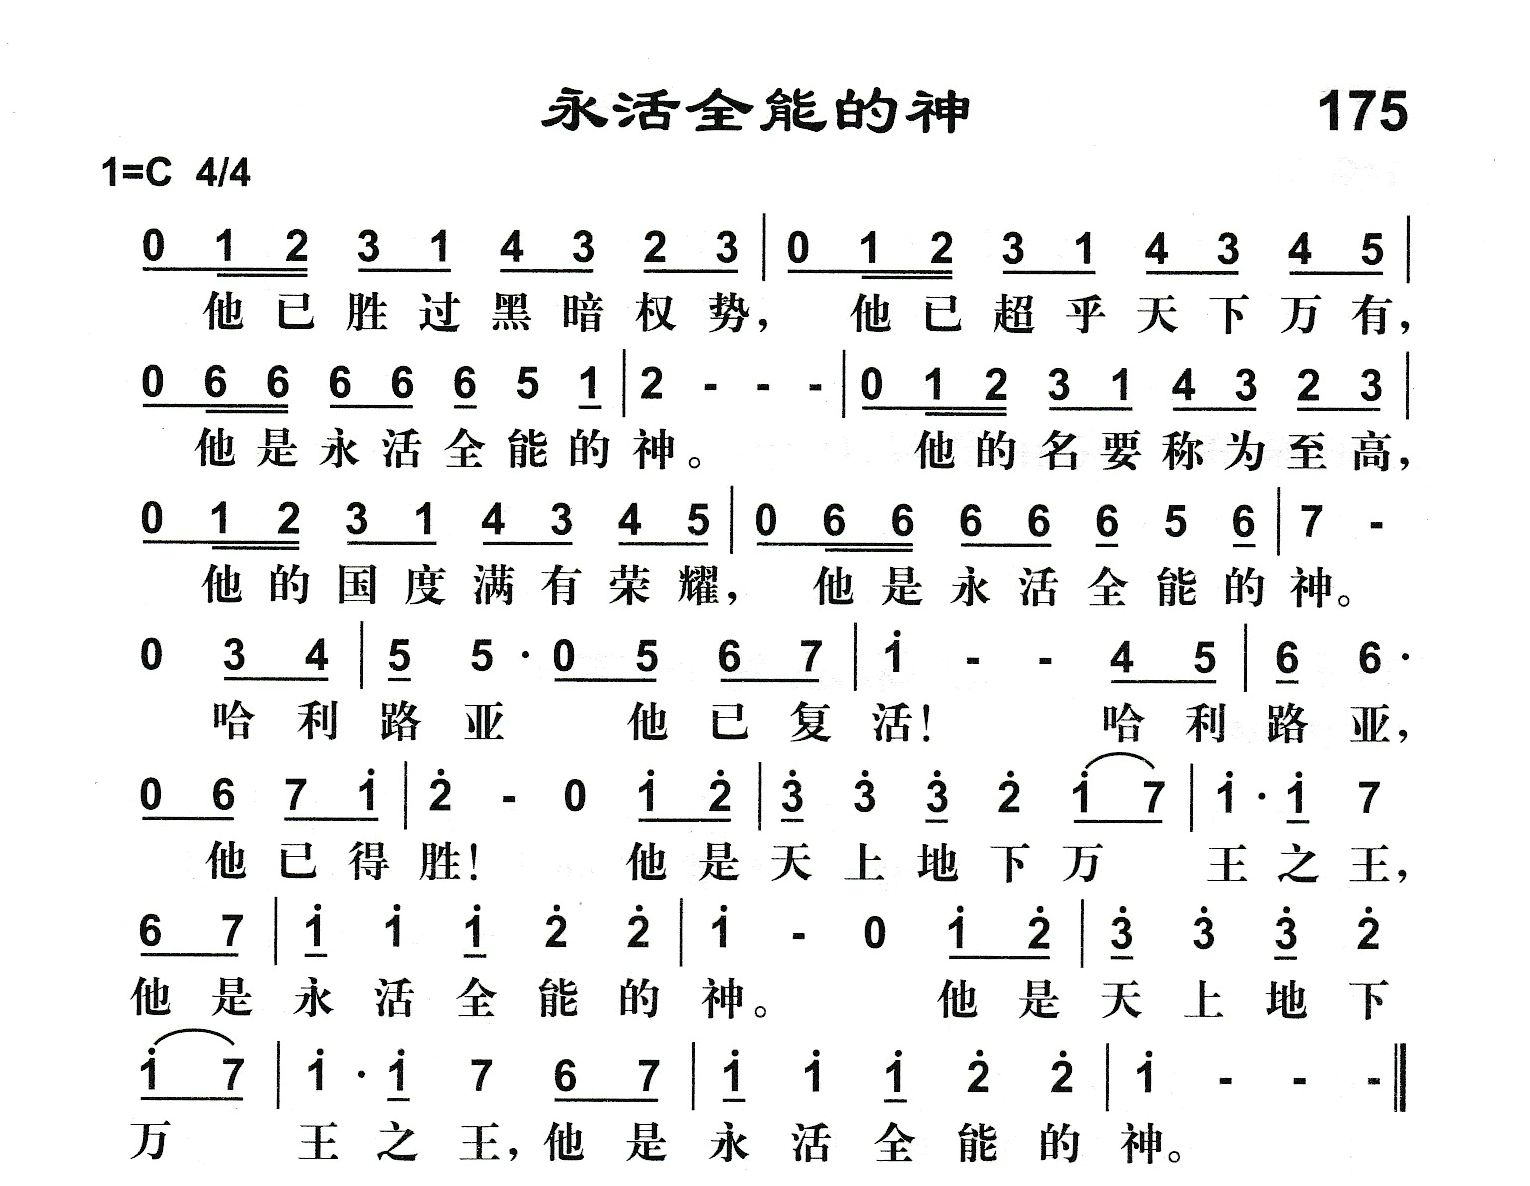 永活全能的神 175
1=C 4/4
0 1 2 3 1 4 3 2 3 | 0 1 2 3 1 4 3 4 5 |
他已胜过黑暗权势， 他已超乎天下万有，
0 6 6 6 6 6 5 1 | 2 - - - | 0 1 2 3 1 4 3 2 3 |
他是永活全能的神。 他的名要称为至高，
0 1 2 3 1 4 3 4 5 | 0 6 6 6 6 6 5 6 | 7 -
他的国度满有荣耀， 他是永活全能的神。
0 3 4 | 5 5 · 0 5 6 7 | i - - 4 5 | 6 6 ·
哈利路亚 他已复活！ 哈利路亚，
0 6 7 i | 2̇ - 0 i 2̇ | 3̇ 3̇ 3̇ 2̇ i 7 | i · i 7
他已得胜！ 他是天上地下万 王之王，
6 7 | i i i 2̇ 2̇ | i - 0 i 2̇ | 3̇ 3̇ 3̇ 2̇
他是永活全能的神。 他是天上地下
i 7 | i · i 7 6 7 | i i i 2̇ 2̇ | i - - - ‖
万 王之王，他是永活全能的神。